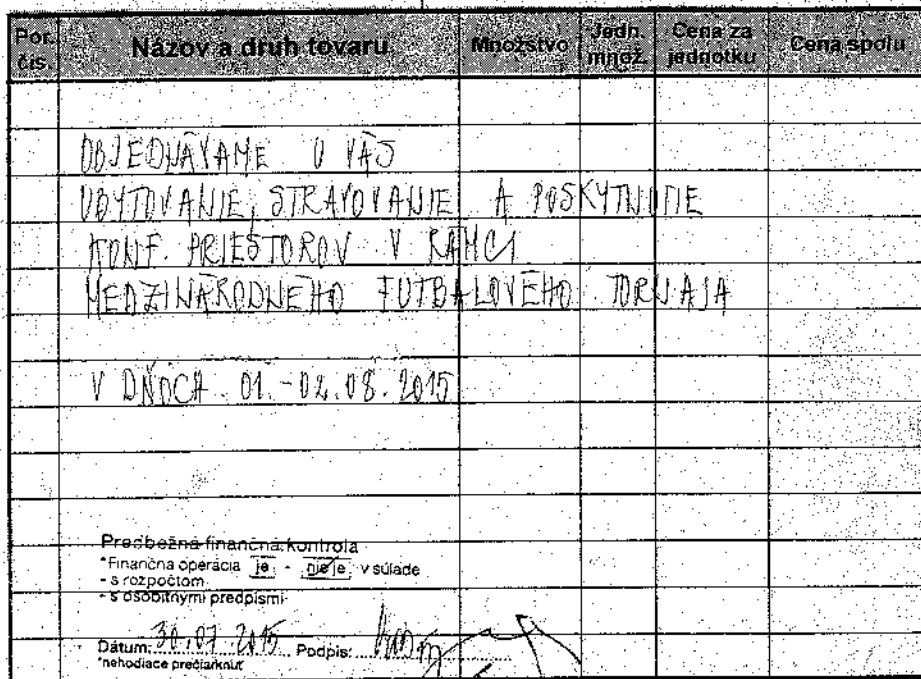 Por. čís. Názov a druh tovaru Množstvo Jedn. množ. Cena za jednotku Cena spolu
OBJEDNÁVAME U VÁS
UBYTOVANIE, STRAVOVANIE A POSKYTNUTIE
KONF. PRIESTOROV V RÁMCI
MEDZINÁRODNÉHO FUTBALOVÉHO TORNAJA
V DŇOCH 01. - 02. 08. 2015
Predbežná finančná kontrola
*Finančná operácia je - nie je v súlade
- s rozpočtom
- s osobitnými predpismi
Dátum: 30.07.2015 Podpis:
*nehodiace prečiarknuť